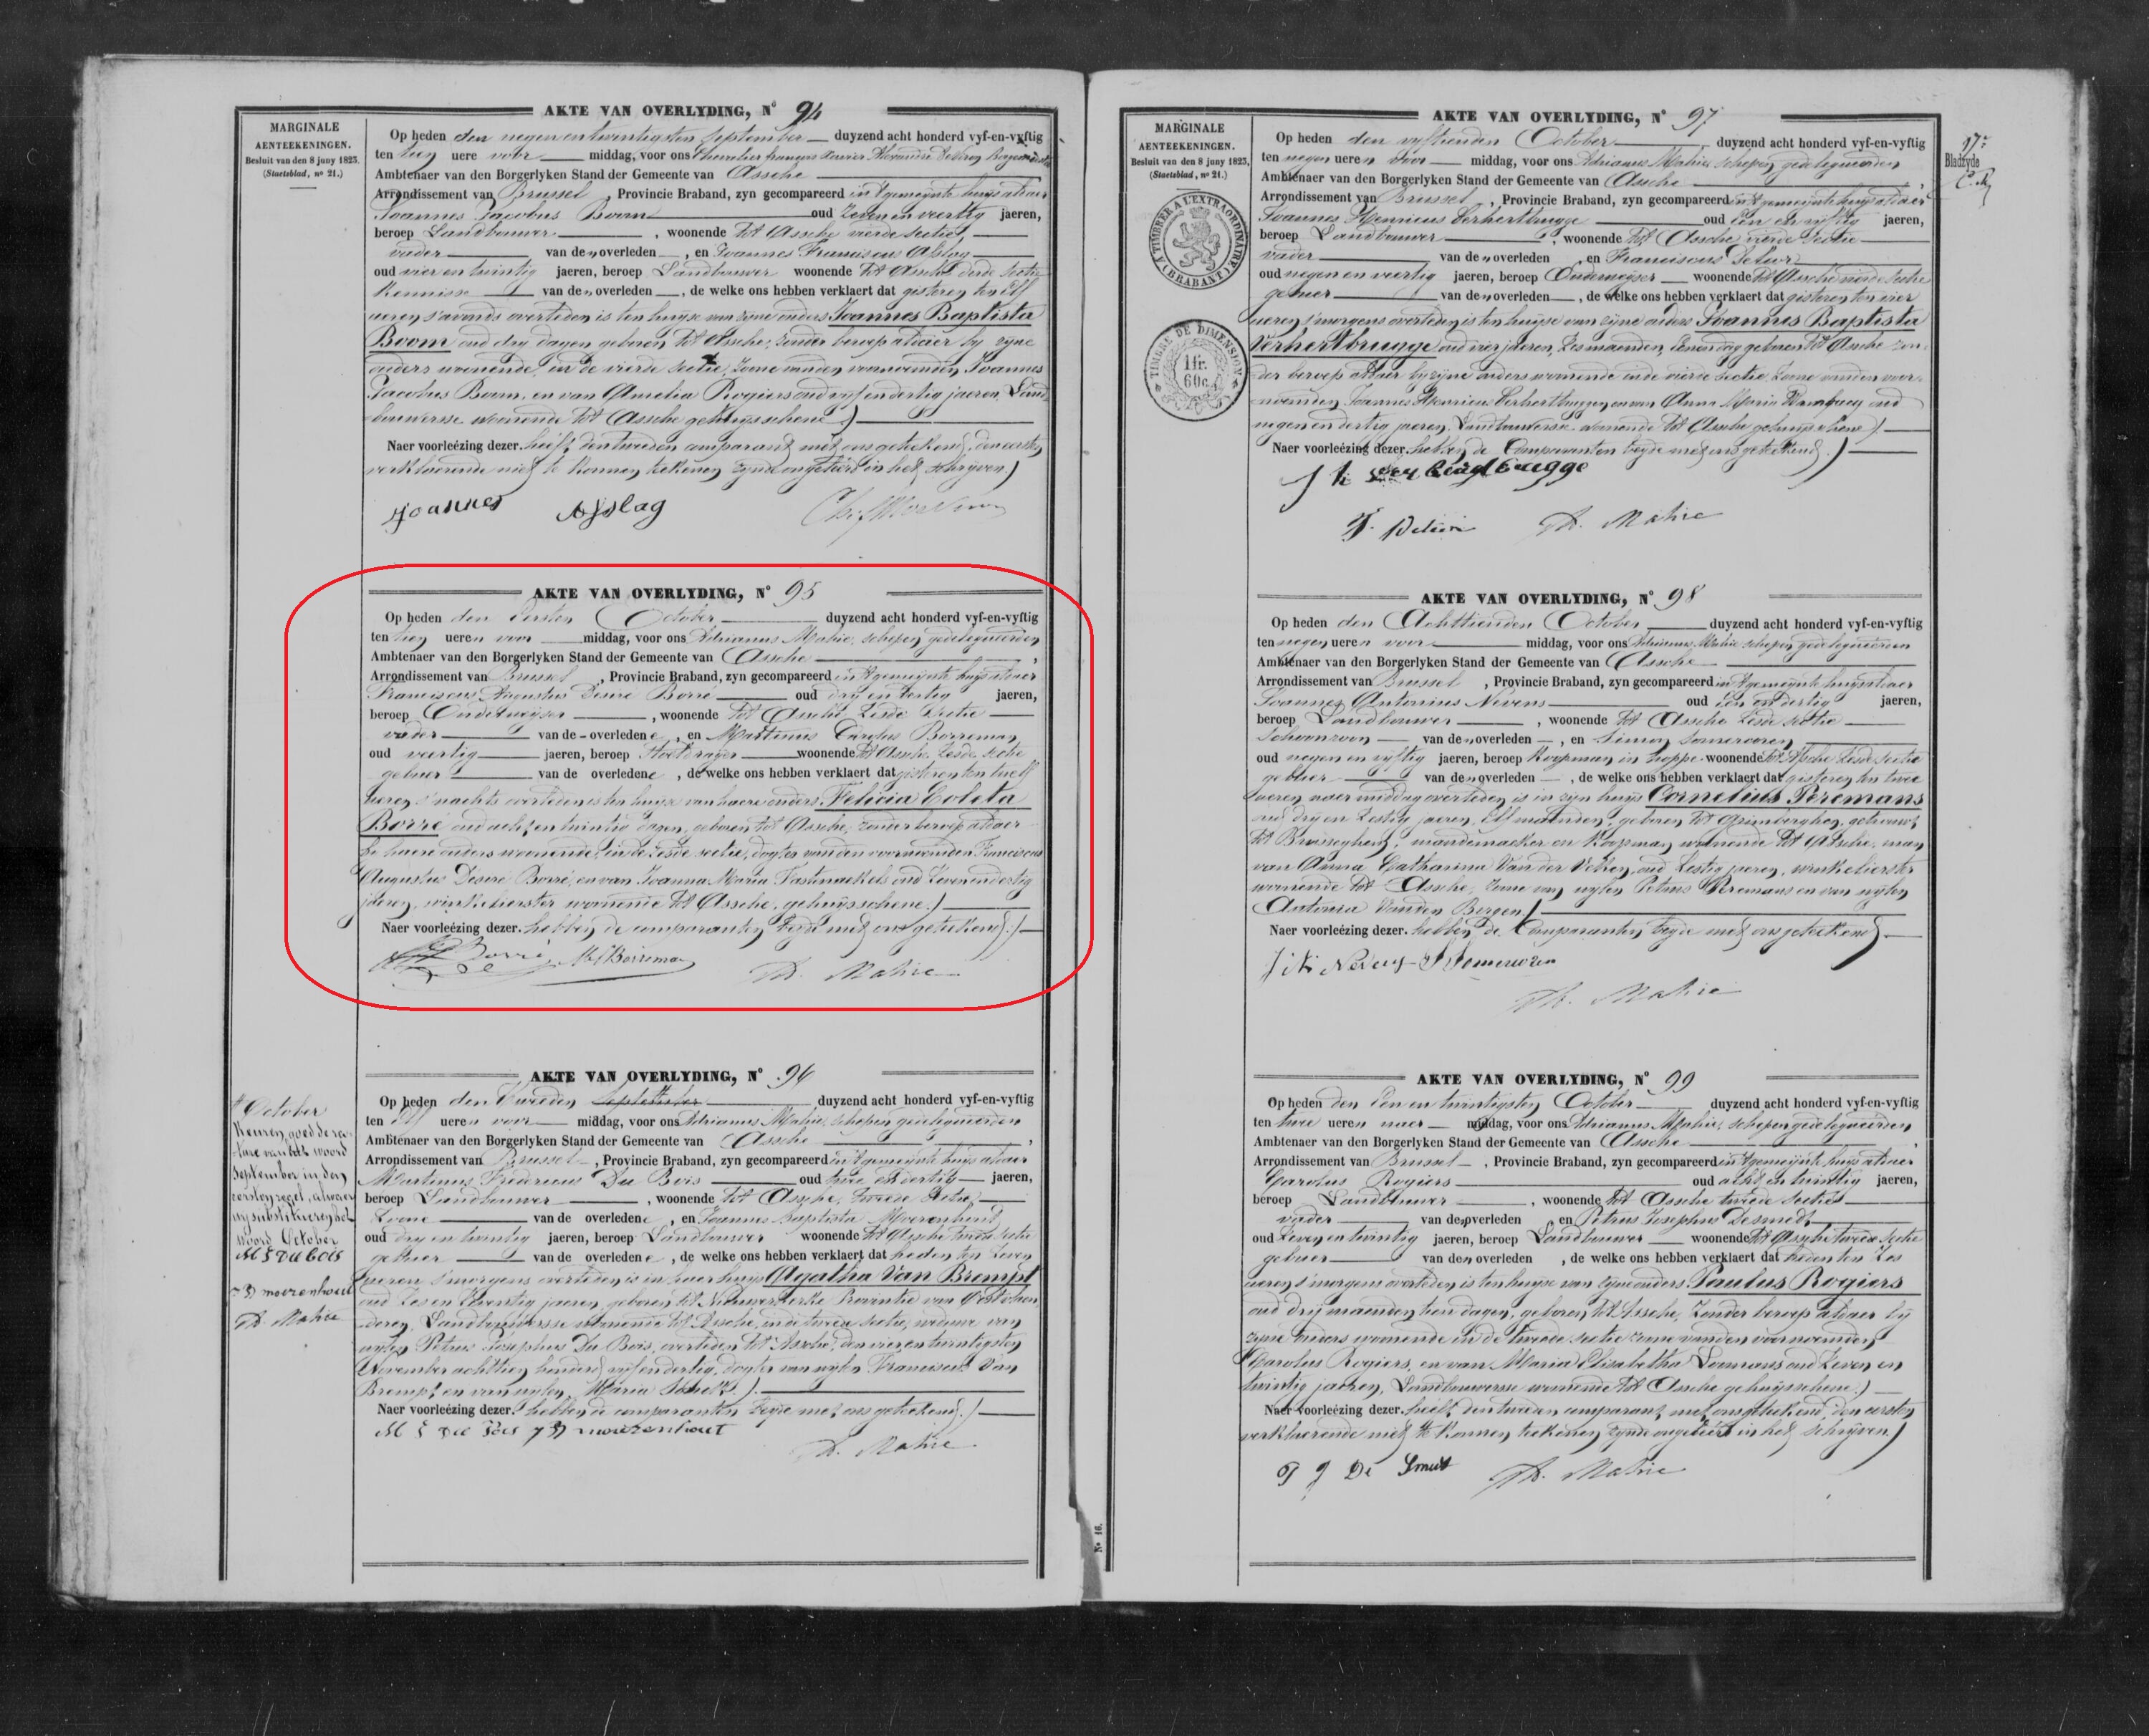 AKTE VAN OVERLYDING, N° 94
MARGINALE
AENTEEKENINGEN.
Besluit van den 8 juny 1823.
(Staetsblad, n° 21.)
Op heden den negenentwintigsten September duyzend acht honderd vyf-en-vyftig
ten tien uere voor middag, voor ons
Ambtenaer van den Borgerlyken Stand der Gemeente van Assche
Arrondissement van Brussel, Provincie Braband, zyn gecompareerd in 't gemeynte huys aldaer
Joannes Jacobus Boom oud zeven en veertig jaeren,
beroep Landbouwer, woonende tot Assche vierde sectie
vader van den overleden, en Joannes Franciscus Asslag
oud vier en twintig jaeren, beroep Landbouwer woonende tot Assche derde sectie
Kennisse van den overleden, de welke ons hebben verklaert dat gisteren ten elf
ueren s'avonds overleden is ten huyse van zyne ouders Joannes Baptista
Boom oud dry dagen geboren tot Assche, zonder beroep aldaer by zyne
ouders woonende in de vierde sectie, zoone van den voornoemden Joannes
Jacobus Boom, en van Amelia Rogiers oud vyf en dertig jaeren, Land-
bouwersse woonende tot Assche gehuysschene)
Naer voorleézing dezer. heeft den tweeden comparant met ons geteekend, den eersten
verklaerende niet te konnen teekenen zynde ongeleerd in het schryven.)
Joannes Asslag
AKTE VAN OVERLYDING, N° 95
Op heden den Eersten October duyzend acht honderd vyf-en-vyftig
ten tien ueren voor middag, voor ons Adrianus Mahie, schepen gedelegueerden
Ambtenaer van den Borgerlyken Stand der Gemeente van Assche,
Arrondissement van Brussel, Provincie Braband, zyn gecompareerd in 't gemeynte huys aldaer
Franciscus Augustus Desiré Borré oud dry en dertig jaeren,
beroep Onderwyser, woonende tot Assche Zesde Sectie
vader van de overledene, en Martinus Carolus Borreman
oud veertig jaeren, beroep woonende tot Assche Zesde sectie
gebuer van de overledene, de welke ons hebben verklaert dat gisteren ten twelf
ueren s'nachts overleden is ten huyse van haere ouders Felicia Coleta
Borré oud acht en twintig dagen, geboren tot Assche, zonder beroep aldaer
by haere ouders woonende, in de zesde sectie, dogter van den voornoemden Franciscus
Augustus Desiré Borré, en van Joanna Maria Pastinaekels oud zeven en dertig
jaeren, winkelierster woonende tot Assche, gehuysschene.)
Naer voorleézing dezer. hebben de comparanten beyde met ons geteekend.)
Borré M C Borreman Ad. Mahie
AKTE VAN OVERLYDING, N° 96
Op heden den Tweeden September duyzend acht honderd vyf-en-vyftig
ten Elf ueren voor middag, voor ons Adrianus Mahie, schepen gedelegueerden
Ambtenaer van den Borgerlyken Stand der Gemeente van Assche,
Arrondissement van Brussel, Provincie Braband, zyn gecompareerd in 't gemeynte huys aldaer
Martinus Fredericus Du Bois oud twee en dertig jaeren,
beroep Landbouwer, woonende tot Assche, tweede Sectie,
Zoone van de overledene, en Joannes Baptista Moerenhout
oud dry en twintig jaeren, beroep Landbouwer woonende tot Assche tweede sectie
gebuer van de overledene, de welke ons hebben verklaert dat heden ten zeven
ueren s'morgens overleden is in haer huys Agatha Van Brempt
oud zes en zeventig jaeren, geboren tot Nieuwerkerke Provintie van Oostvlaen-
deren, Landbouwersse woonende tot Assche, in de tweede sectie, weduwe van
wylen Petrus Josephus Du Bois, overleden tot Assche, den vier en twintigsten
November achttien honderd vyf en dertig, dogter van wylen Franciscus Van
Brempt en van wylen Maria)
Naer voorleézing dezer. hebben de comparanten beyde met ons geteekend.)
M F Du Bois J B moerenhout
Ad. Mahie
October
Keuren goed de ra-
ture van het woord
September in den
eersten regel, alwaer
wy substitueren het
woord October
M F Du Bois
J B moerenhout
Ad. Mahie
AKTE VAN OVERLYDING, N° 97
17e
Bladzyde
MARGINALE
AENTEEKENINGEN.
Besluit van den 8 juny 1823.
(Staetsblad, n° 21.)
TIMBRE A L'EXTRAORDINAIRE
(BRABANT)
TIMBRE DE DIMENSION
1fr.
60c.
Op heden den vyftienden October, duyzend acht honderd vyf-en-vyftig
ten negen ueren voor middag, voor ons Adrianus Mahie schepen gedelegueerden
Ambtenaer van den Borgerlyken Stand der Gemeente van Assche,
Arrondissement van Brussel, Provincie Braband, zyn gecompareerd in 't gemeynte huys aldaer
Joannes Henricus Verhertbrugge oud een en vyftig jaeren,
beroep Landbouwer, woonende tot Assche vierde sectie
vader van den overleden, en Franciscus
oud negen en veertig jaeren, beroep Onderwyser woonende tot Assche vierde sectie
gebuer van den overleden, de welke ons hebben verklaert dat gisteren ten vier
ueren s'morgens overleden is ten huyse van zyne ouders Joannes Baptista
Verhertbrugge oud vier jaeren, zes maenden, eenen dag geboren tot Assche zon-
der beroep aldaer by zyne ouders woonende in de vierde sectie, zoone van den voor-
noemden Joannes Henricus Verhertbruggen en van Anna Maria oud
negen en dertig jaeren, Landbouwersse woonende tot Assche gehuysschene)
Naer voorleézing dezer. hebben de Comparanten beyde met ons geteekend.)
J h
F. Ad. Mahie
AKTE VAN OVERLYDING, N° 98
Op heden den Achttienden October duyzend acht honderd vyf-en-vyftig
ten negen ueren voor middag, voor ons Adrianus Mahie schepen gedelegueerden
Ambtenaer van den Borgerlyken Stand der Gemeente van Assche
Arrondissement van Brussel, Provincie Braband, zyn gecompareerd in 't gemeynte huys aldaer
Joannes Antonius Nevens oud een en dertig jaeren,
beroep Landbouwer, woonende tot Assche zesde sectie
Schoonzoon van den overleden, en Simon
oud negen en vyftig jaeren, beroep Koopman in hoppe woonende tot Assche zesde sectie
gebuer van den overleden, de welke ons hebben verklaert dat gisteren ten twee
ueren naer middag overleden is in zyn huys Cornelius Peremans
oud dry en zestig jaeren, elf maenden, geboren tot Grimberghen, getrouwt
tot Brusseghem, mandemaeker en Koopman woonende tot Assche, man
van Anna Catharina Van der Veken, oud zestig jaeren, winkelierster
woonende tot Assche, zoone van wylen Petrus Peremans en van wylen
Antonia Vanden Bergen.)
Naer voorleézing dezer. hebben de Comparanten beyde met ons geteekend.
Ad. Mahie
AKTE VAN OVERLYDING, N° 99
Op heden den Een en twintigsten October duyzend acht honderd vyf-en-vyftig
ten twee ueren naer middag, voor ons Adrianus Mahie, schepen gedelegueerden
Ambtenaer van den Borgerlyken Stand der Gemeente van Assche,
Arrondissement van Brussel, Provincie Braband, zyn gecompareerd in 't gemeynte huys aldaer
Carolus Rogiers oud acht en twintig jaeren,
beroep Landbouwer, woonende tot Assche tweede sectie
vader van den overleden en Petrus Josephus Desmedt
oud zeven en twintig jaeren, beroep Landbouwer woonende tot Assche tweede sectie
gebuer van den overleden, de welke ons hebben verklaert dat heden ten zes
ueren s'morgens overleden is ten huyse van zyne ouders Paulus Rogiers
oud dry maenden tien dagen, geboren tot Assche, zonder beroep aldaer by
zyne ouders woonende in de tweede sectie zoone van den voornoemden
Carolus Rogiers, en van Maria Elisabetha oud zeven en
twintig jaeren, Landbouwersse woonende tot Assche gehuysschene.)
Naer voorleézing dezer. heeft den tweeden comparant met ons geteekend, den eersten
verklaerende niet te konnen teekenen zynde ongeleerd in het schryven.)
P J De Smedt Ad. Mahie
N° 16.